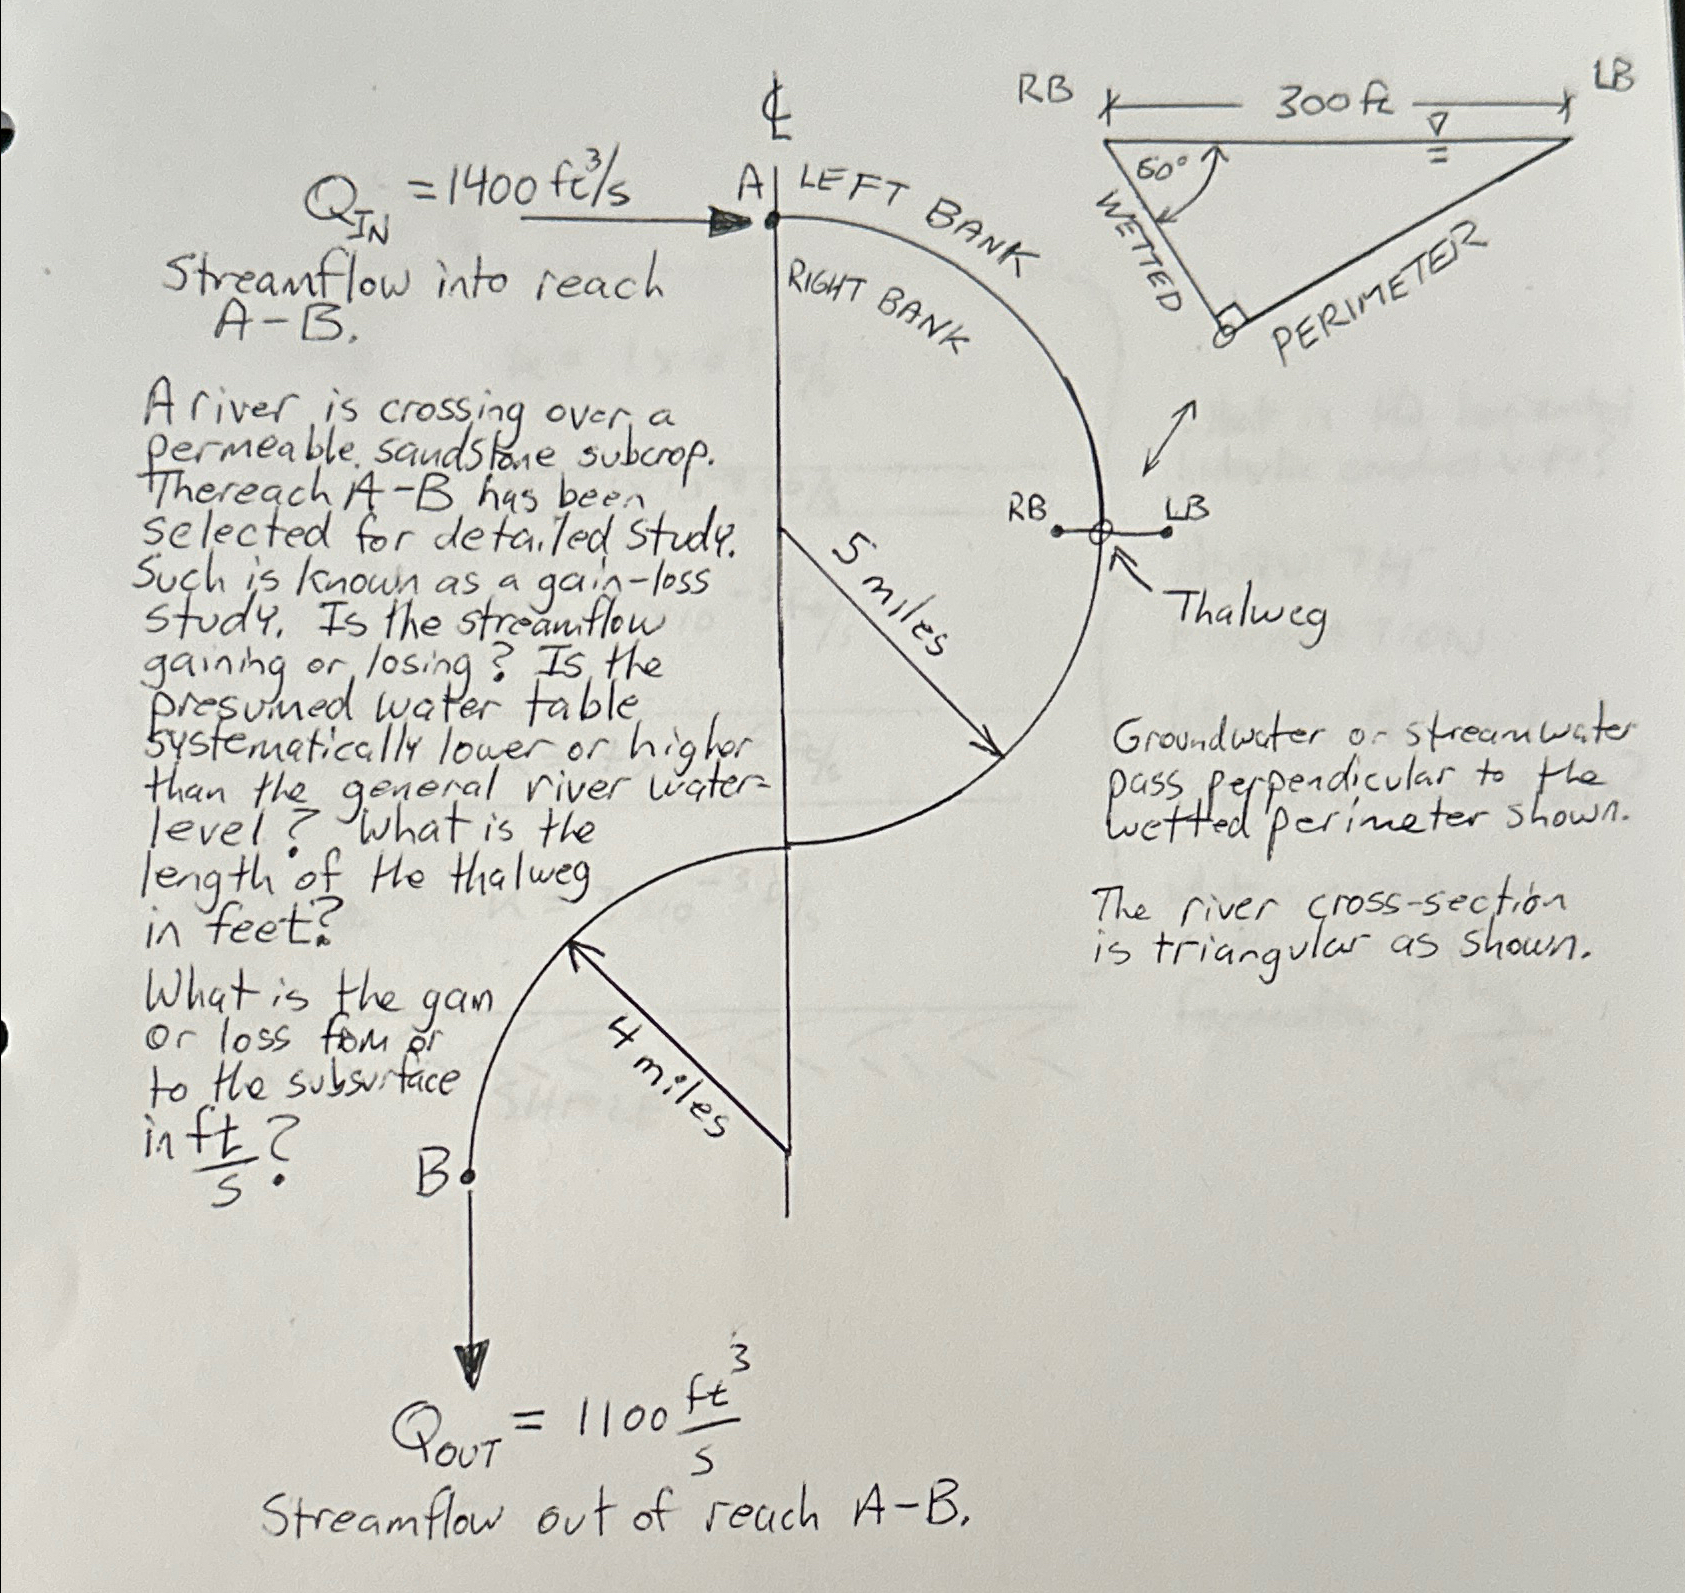 ℄
RB 300 ft LB
60°
WETTED PERIMETER
Q_IN = 1400 ft³/s
A
LEFT BANK
RIGHT BANK
Streamflow into reach
A-B.
A river is crossing over a
permeable sandstone subcrop.
The reach A-B has been
selected for detailed study.
Such is known as a gain-loss
study. Is the streamflow
gaining or losing? Is the
presumed water table
systematically lower or higher
than the general river water-
level? What is the
length of the thalweg
in feet?
What is the gan
or loss fom or
to the subsurface
in ft/s?
RB LB
5 miles
Thalweg
Groundwater or streamwater
pass perpendicular to the
wetted perimeter shown.
The river cross-section
is triangular as shown.
4 miles
B
Q_OUT = 1100 ft³/s
Streamflow out of reach A-B.